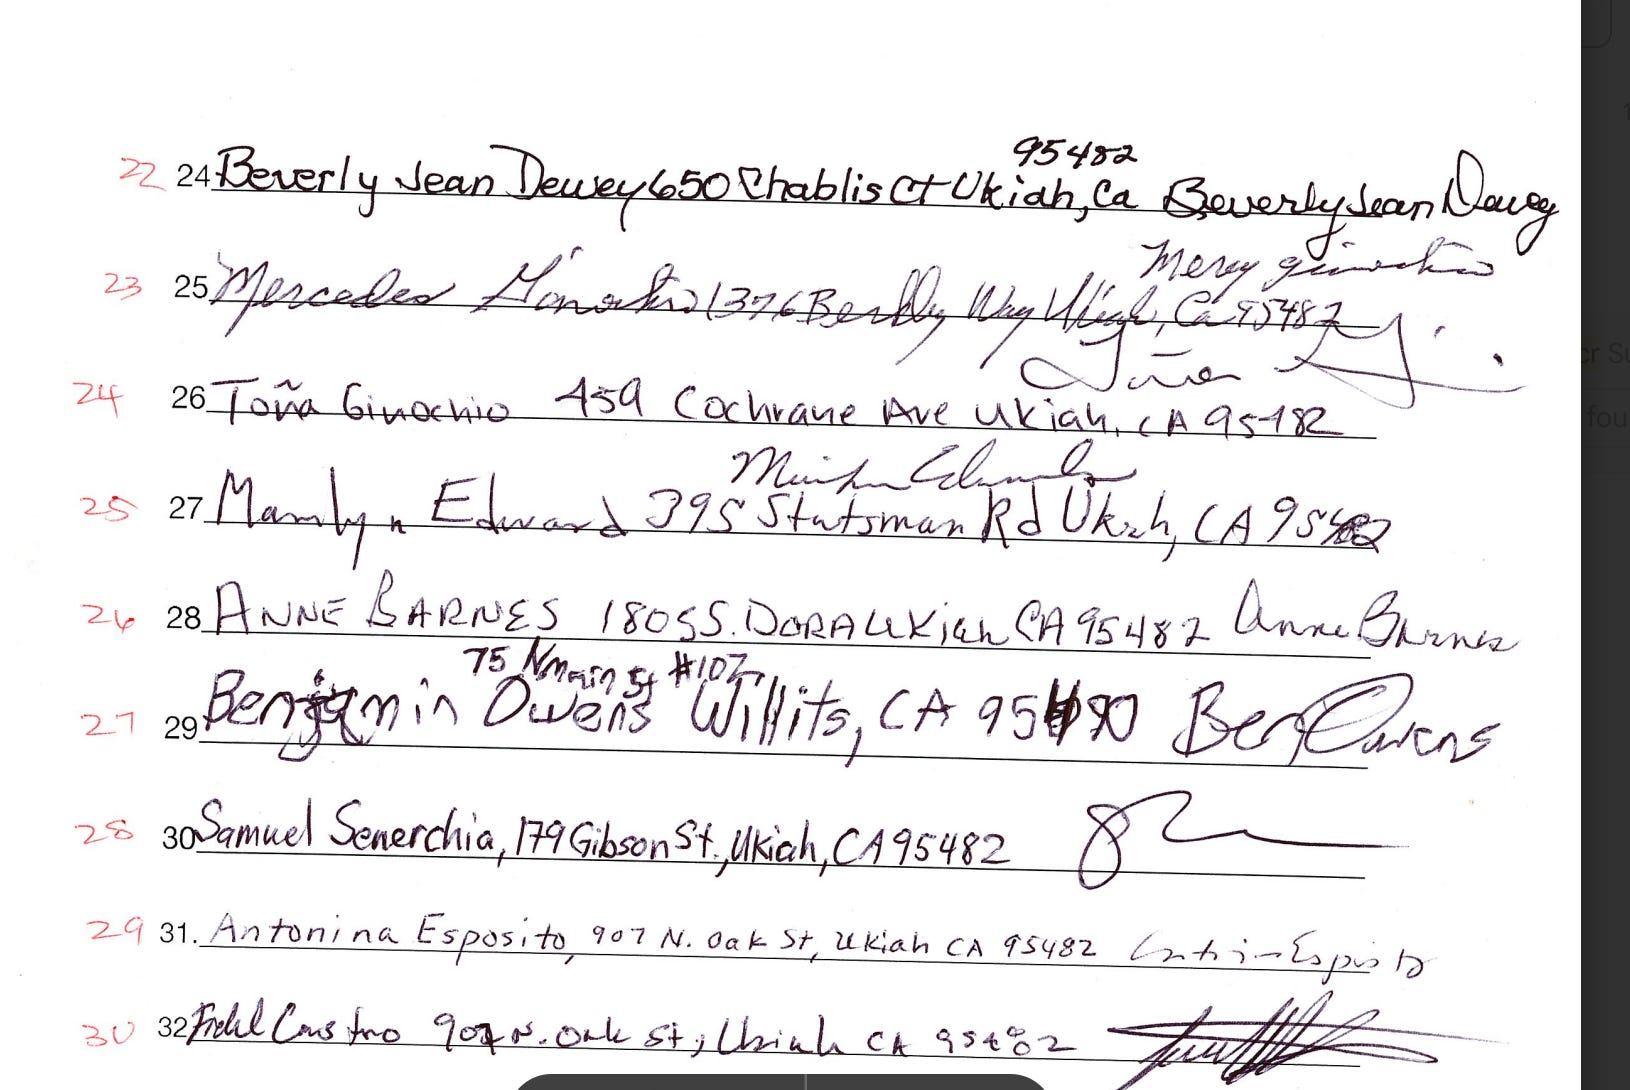 95482
22 24 Beverly Jean Dewey 650 Chablis Ct Ukiah, Ca Beverly Jean Dewey
23 25 Mercedes Ginochio 1376 Way Ukiah, Ca 95482
24 26 Toña Ginochio 459 Cochrane Ave Ukiah, CA 95482 Toña
25 27 Marilyn Edward 395 Stutsman Rd Ukiah, CA 95482
26 28 ANNE BARNES 1805 S. DORA Ukiah CA 95482 Anne Barnes
75 N main St #107
27 29 Benjamin Owens Willits, CA 95490 Ben Owens
28 30 Samuel Senerchia, 179 Gibson St., Ukiah, CA 95482
29 31. Antonina Esposito, 907 N. Oak St, Ukiah CA 95482
30 32 Fidel Castro 907 N. Oak St, Ukiah CA 95482